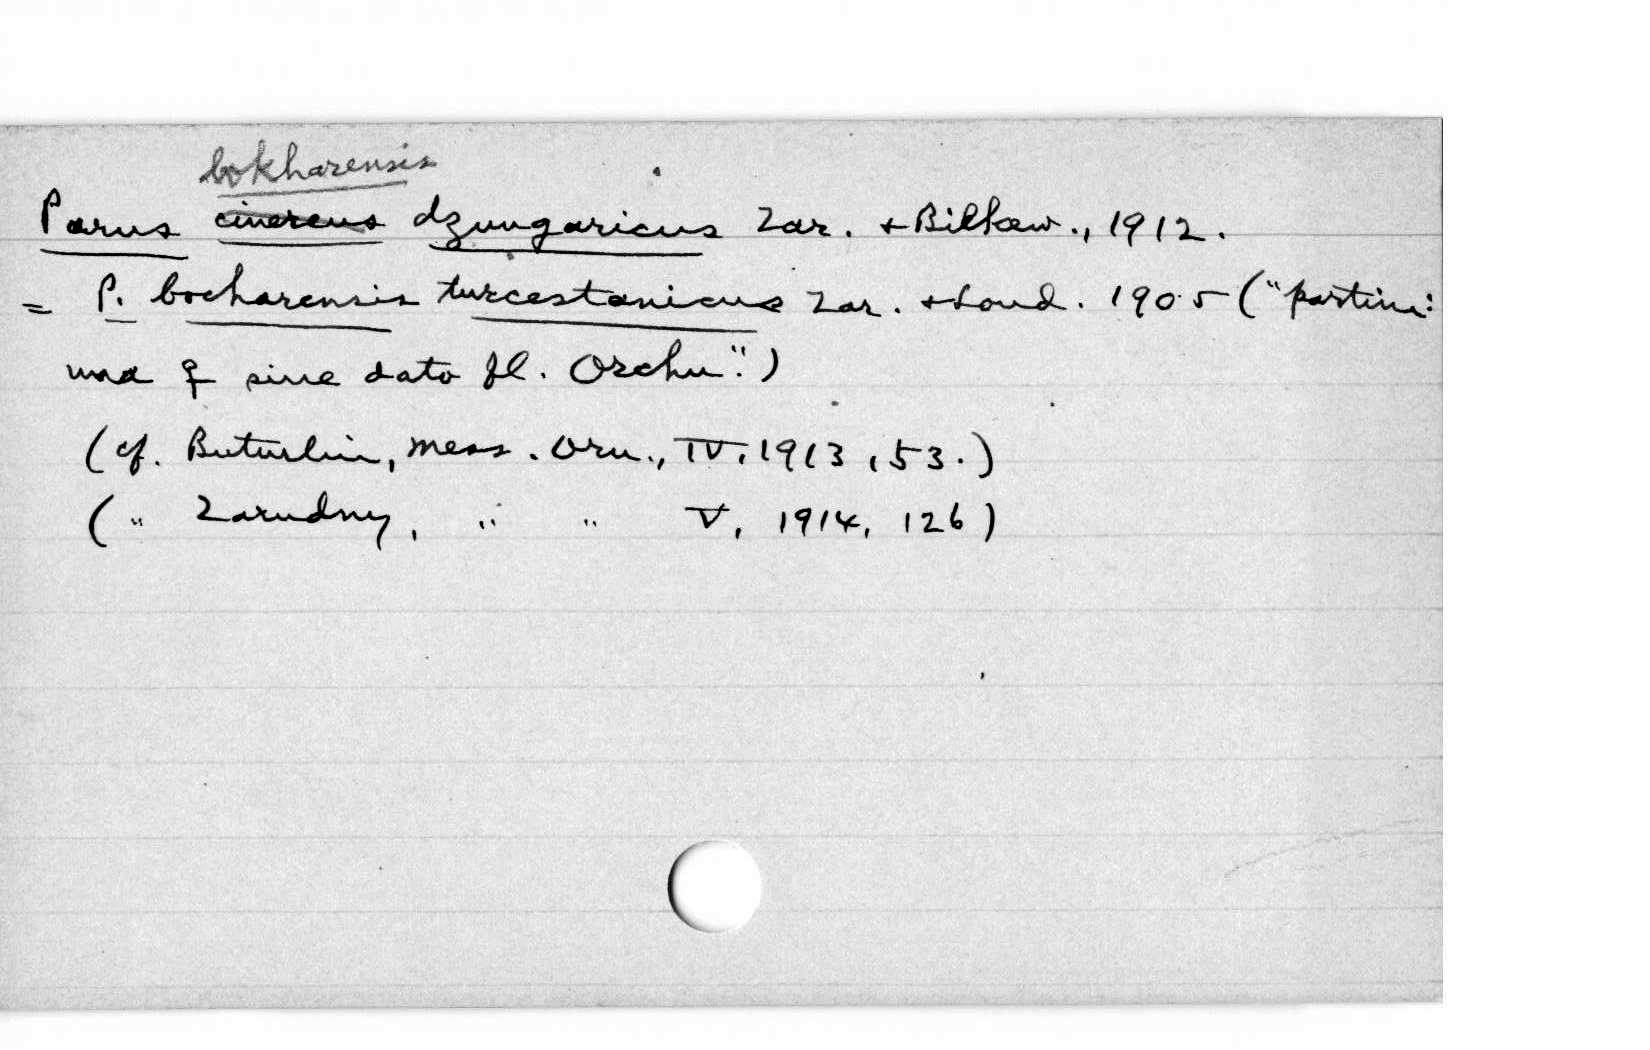 bokharensis
Parus cinereus dzungaricus Zar. + Bilkew., 1912.
= P. bocharensis turcestanicus Zar. + Loud. 1905 ("partim:
una ♀ sine dato fl. Orchu".)
(cf. Buturlin, Mess. Orn., IV, 1913, 53.)
(" Zarudny, " " V, 1914, 126)